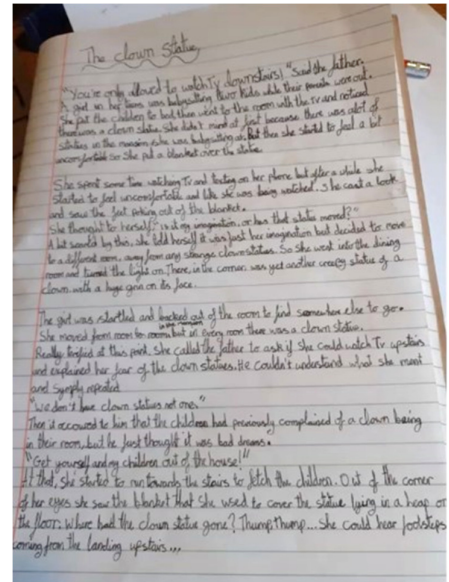 The clown statue
"You're only allowed to watch Tv downstairs!" Said the father.
A girl in her teens was babysitting two kids while their parents were out.
She put the children to bed then went to the room with the TV and noticed
there was a clown statue. She didn't mind at first because there was alot of
statues in the mansion she was babysitting at. But then she started to feel a bit
uncomfortable so she put a blanket over the statue.
She spent some time watching Tv and texting on her phone but after a while she
started to feel uncomfortable and like she was being watched. She cast a look
and saw the feet poking out of the blanket.
She thought to herself: "is it my imagination, or has that statue moved?"
A bit scared by this, she told herself it was just her imagination but decided to move
to a different room, away from any strange clown statues. So she went into the dining
room and turned the light on. There, in the corner was yet another creepy statue of a
clown with a huge grin on its face.
The girl was startled and backed out of the room to find somewhere else to go.
She moved from room to room in the mansion but in every room there was a clown statue.
Really terrified at this point, she called the father to ask if she could watch Tv upstairs
and explained her fear of the clown statues. He couldn't understand what she meant
and symply repeated
"We don't have clown statues not one."
Then it occoured to him that the children had previously complained of a clown being
in their room, but he just thought it was bad dreams.
"Get yourself and my children out of the house!"
At that, she started to run towards the stairs to fetch the children. Out of the corner
of her eyes she saw the blanket that she used to cover the statue lying in a heap on
the floor. Where had the clown statue gone? Thump, thump.... She could hear footsteps
coming from the landing upstairs...